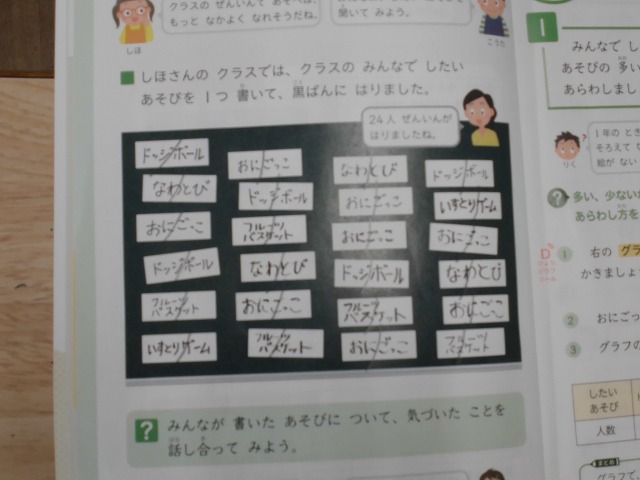 クラスの ぜんいんで あそべば、
もっと なかよく なれそうだね。
しほ
聞いて みよう。
こうた
しほさんの クラスでは、クラスの みんなで したい
あそびを 1つ 書いて、黒ばんに はりました。
24人 ぜんいんが
はりましたね。
ドッジボール
おにごっこ
なわとび
ドッジボール
なわとび
ドッジボール
おにごっこ
いすとりゲーム
おにごっこ
フルーツバスケット
おにごっこ
おにごっこ
ドッジボール
なわとび
ドッジボール
なわとび
フルーツバスケット
おにごっこ
フルーツバスケット
おにごっこ
いすとりゲーム
フルーツバスケット
おにごっこ
フルーツバスケット
? みんなが 書いた あそびに ついて、気づいた ことを
話し合って みよう。
1
みんなで し
あそびの 多い
あらわしまし
1年の とき
そろえて な
絵が ない
りく
? 多い、少ないが
あらわし方を
1 右の グラ
かきましょ
2 おにごっ
3 グラフの
したい
あそび
人数
まとめ
グラフで